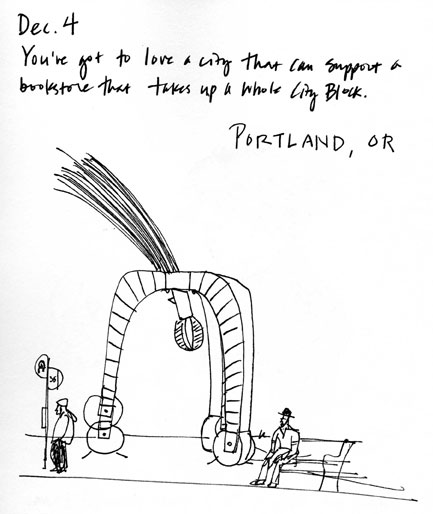 Dec. 4
You've got to love a city that can support a
bookstore that takes up a whole City Block.
PORTLAND, OR